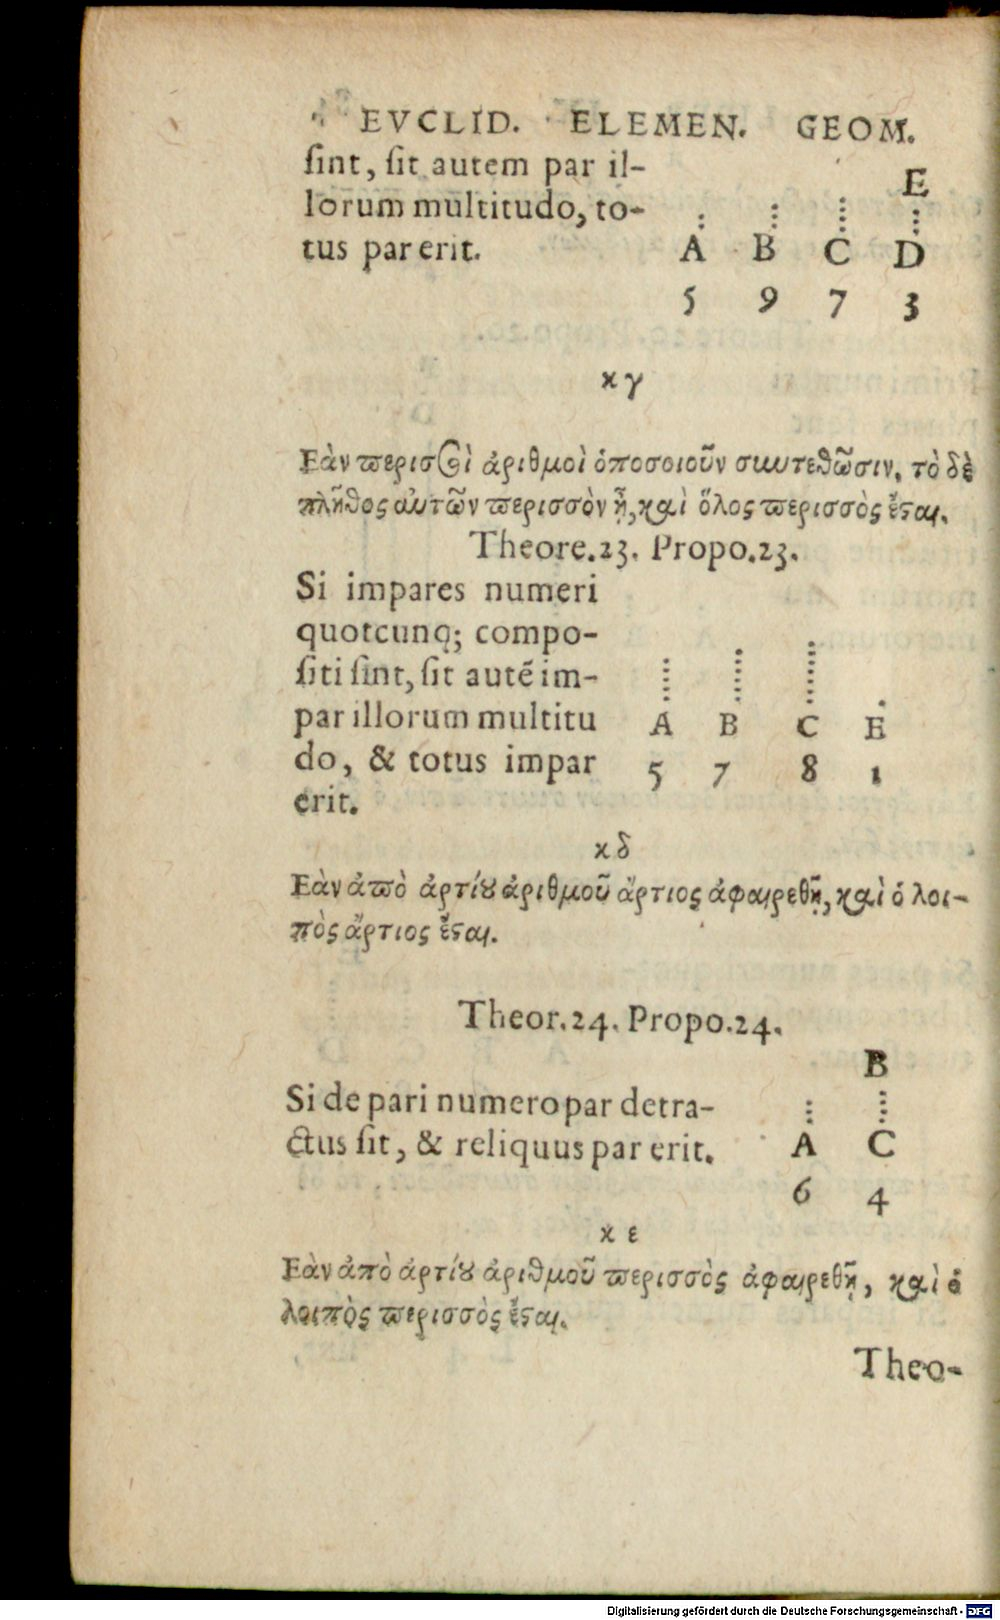 EVCLID. ELEMEN. GEOM.
sint, sit autem par il-
lorum multitudo, to-
tus par erit.
E
A B C D
5 9 7 3
κγ
Εὰν περισσοὶ ἀριθμοὶ ὁποσοιοῦν συντεθῶσιν, τὸ δὲ
πλῆθος αὐτῶν περισσὸν ᾖ, καὶ ὅλος περισσὸς ἔσται.
Theore.23. Propo.23.
Si impares numeri
quotcunq; compo-
siti sint, sit autē im-
par illorum multitu
do, & totus impar
erit.
A B C E
5 7 8 1
κδ
Εὰν ἀπὸ ἀρτίου ἀριθμοῦ ἄρτιος ἀφαιρεθῇ, καὶ ὁ λοι-
πὸς ἄρτιος ἔσται.
Theor.24. Propo.24.
Si de pari numero par detra-
ctus sit, & reliquus par erit.
B
A C
6 4
κε
Εὰν ἀπὸ ἀρτίου ἀριθμοῦ περισσὸς ἀφαιρεθῇ, καὶ ὁ
λοιπὸς περισσὸς ἔσται.
Theo-
Digitalisierung gefördert durch die Deutsche Forschungsgemeinschaft - DFG